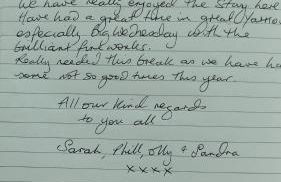 We have really enjoyed the stay here
Have had a great time in great Yarmo
especially Big Wednesday with the
brilliant fireworks.
Really needed this break as we have ha
some not so good times this year.
All our kind regards
to you all
Sarah, Phill, Olly & Sandra
x x x x